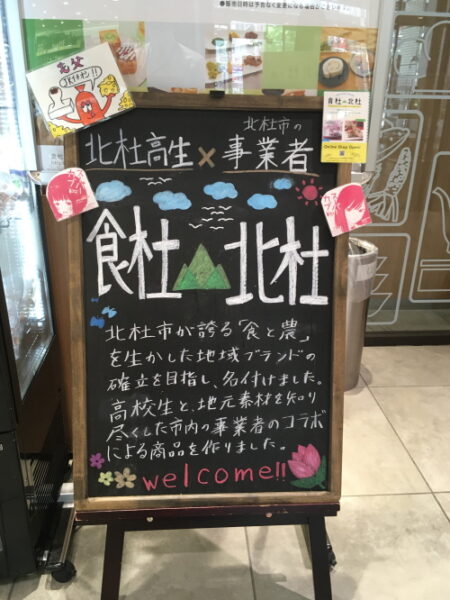 ●販売日時は予告なく変更になる場合がございます。
北杜高生×北杜市の事業者
食杜
北杜
北杜市が誇る「食と農」
を生かした地域ブランドの
確立を目指し、名付けました。
高校生と、地元素材を知り
尽くした市内の事業者のコラボ
による商品を作りました。
welcome!!